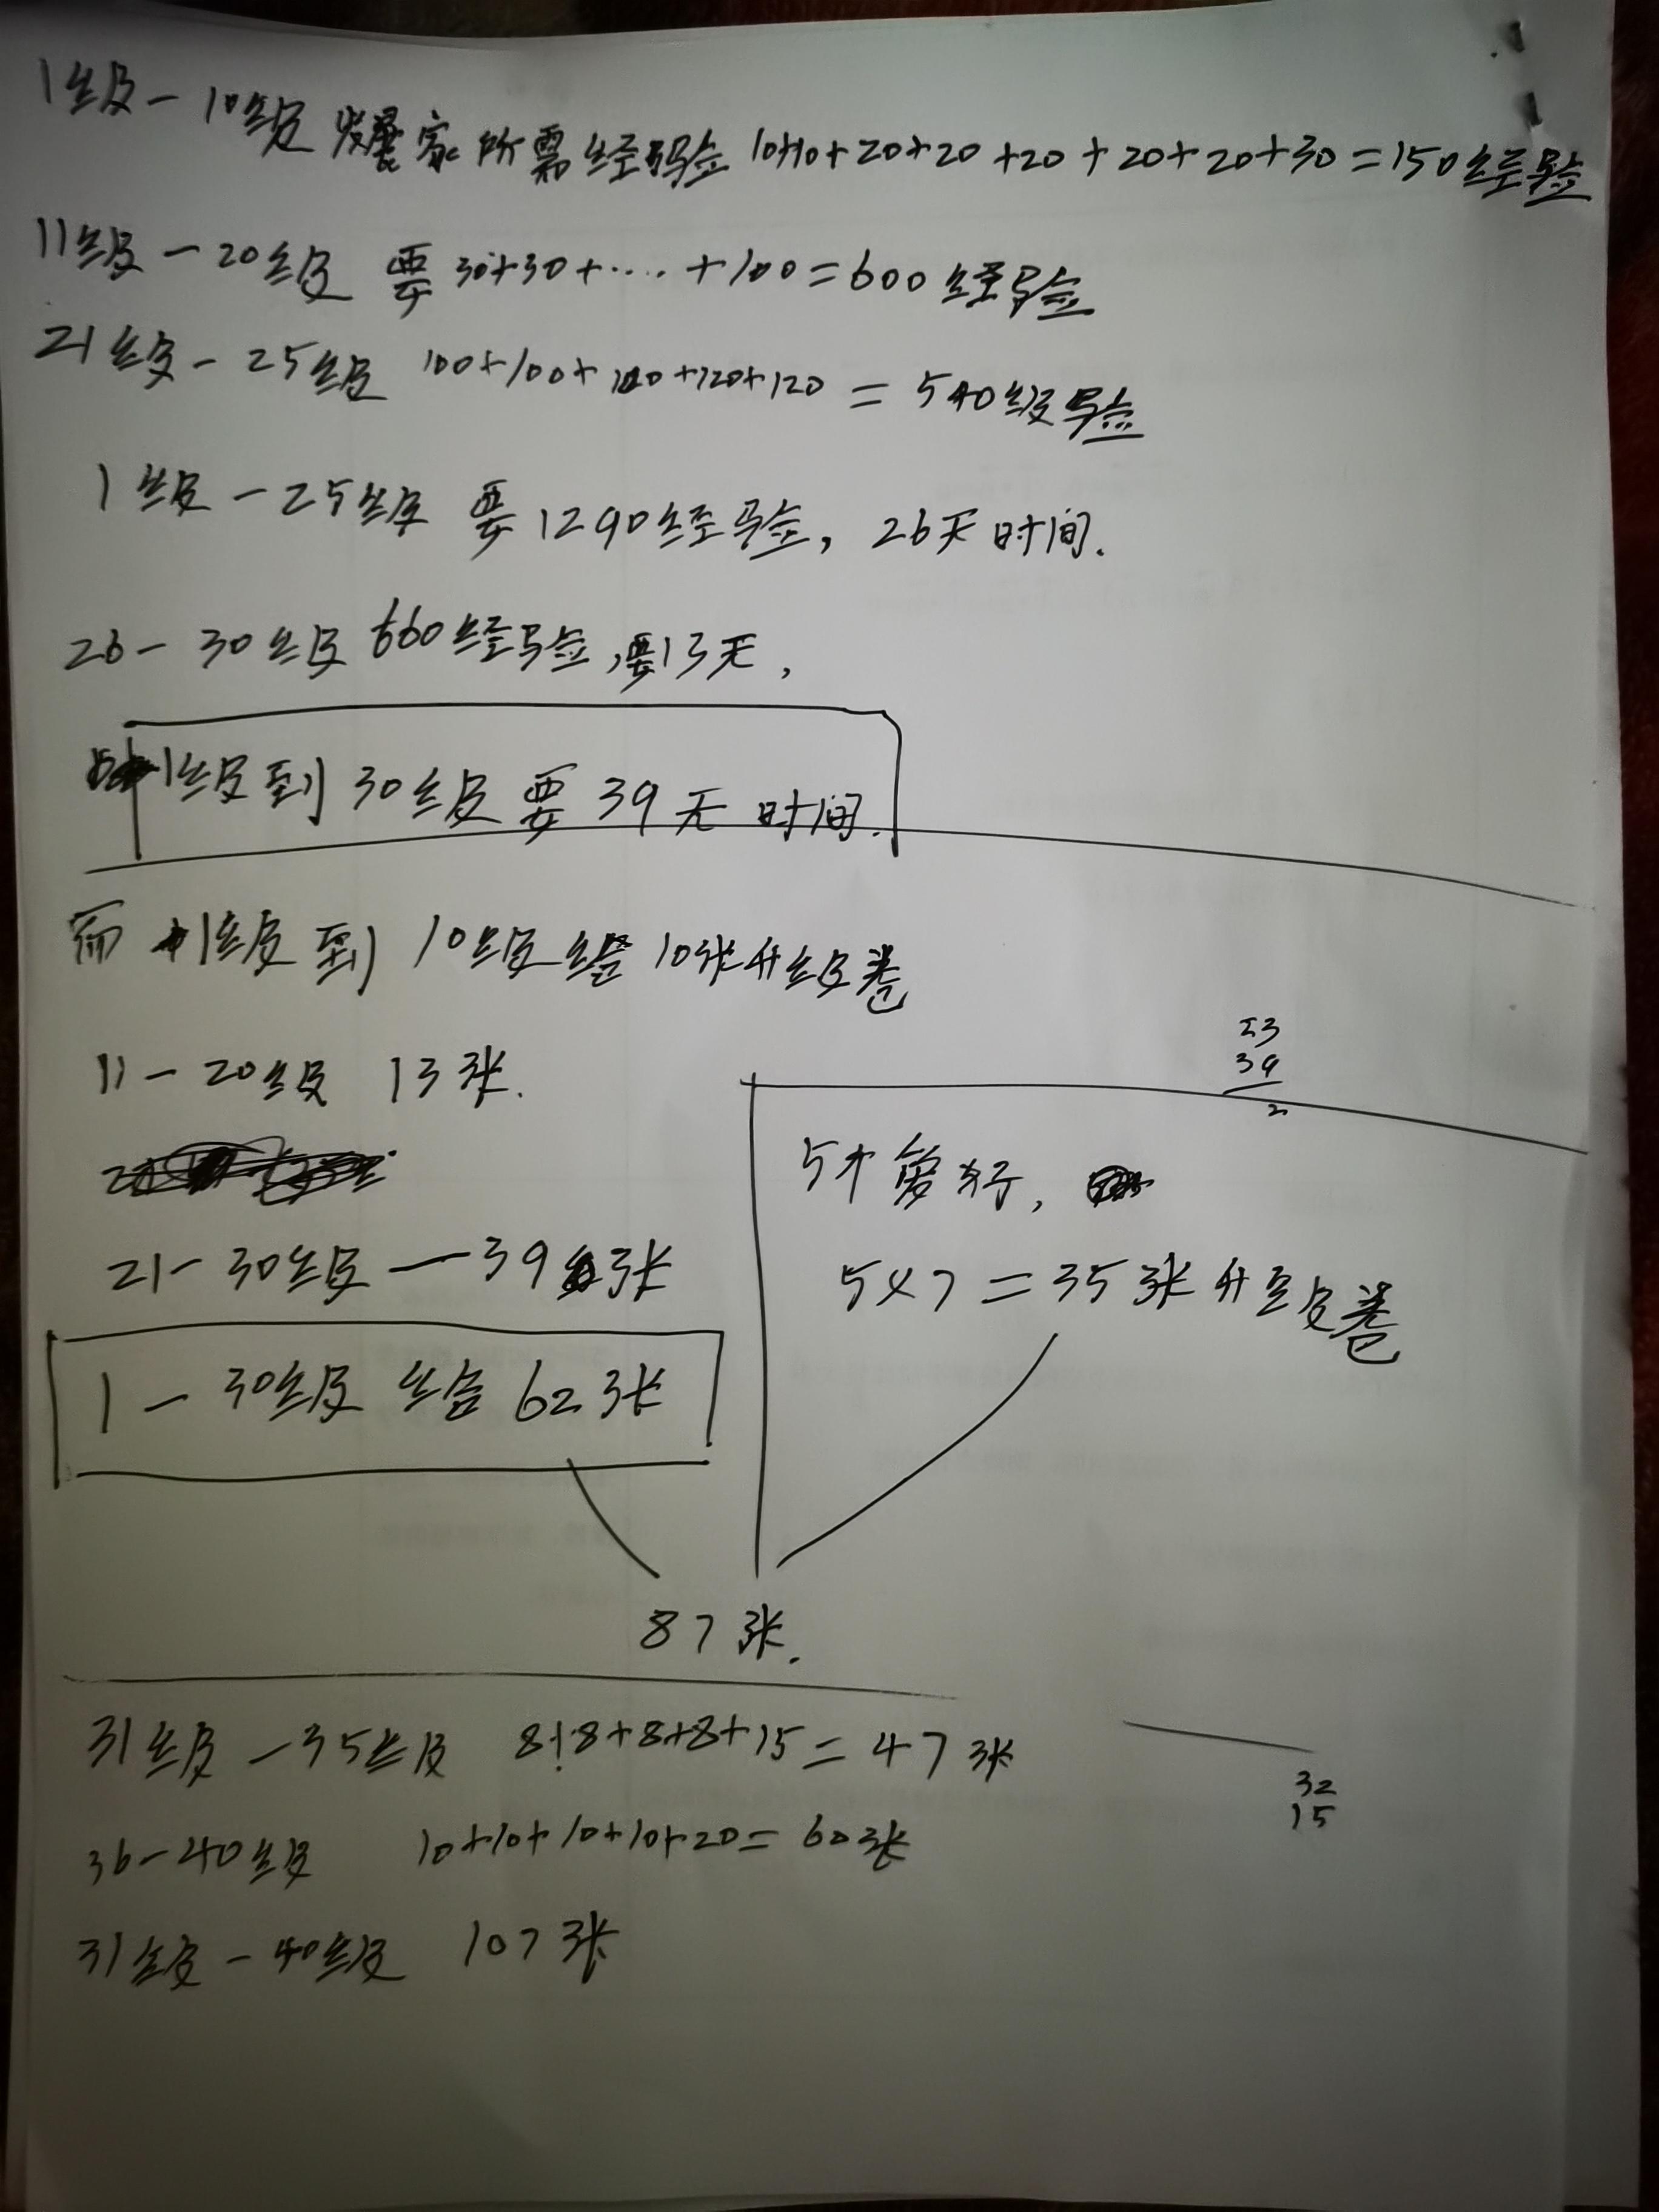 1级-10级 所需经验 10+10+20+20+20+20+20+30=150经验
11级-20级 要 30+30+....+100=600经验
21级-25级 100+100+100+120+120=540级验
1级-25级 要1290经验,26天时间.
26-30级 660经验,要13天,
1级到30级要39天时间.
而1级到10级给10张升级卷
11-20级 13张.
23
39
2
21-30级—39张
1-30级 给 62张
5个
5×7=35张升级卷
87张.
31级-35级 8+8+8+8+15=47张
32
15
36-40级 10+10+10+10+20=60张
31级-40级 107张